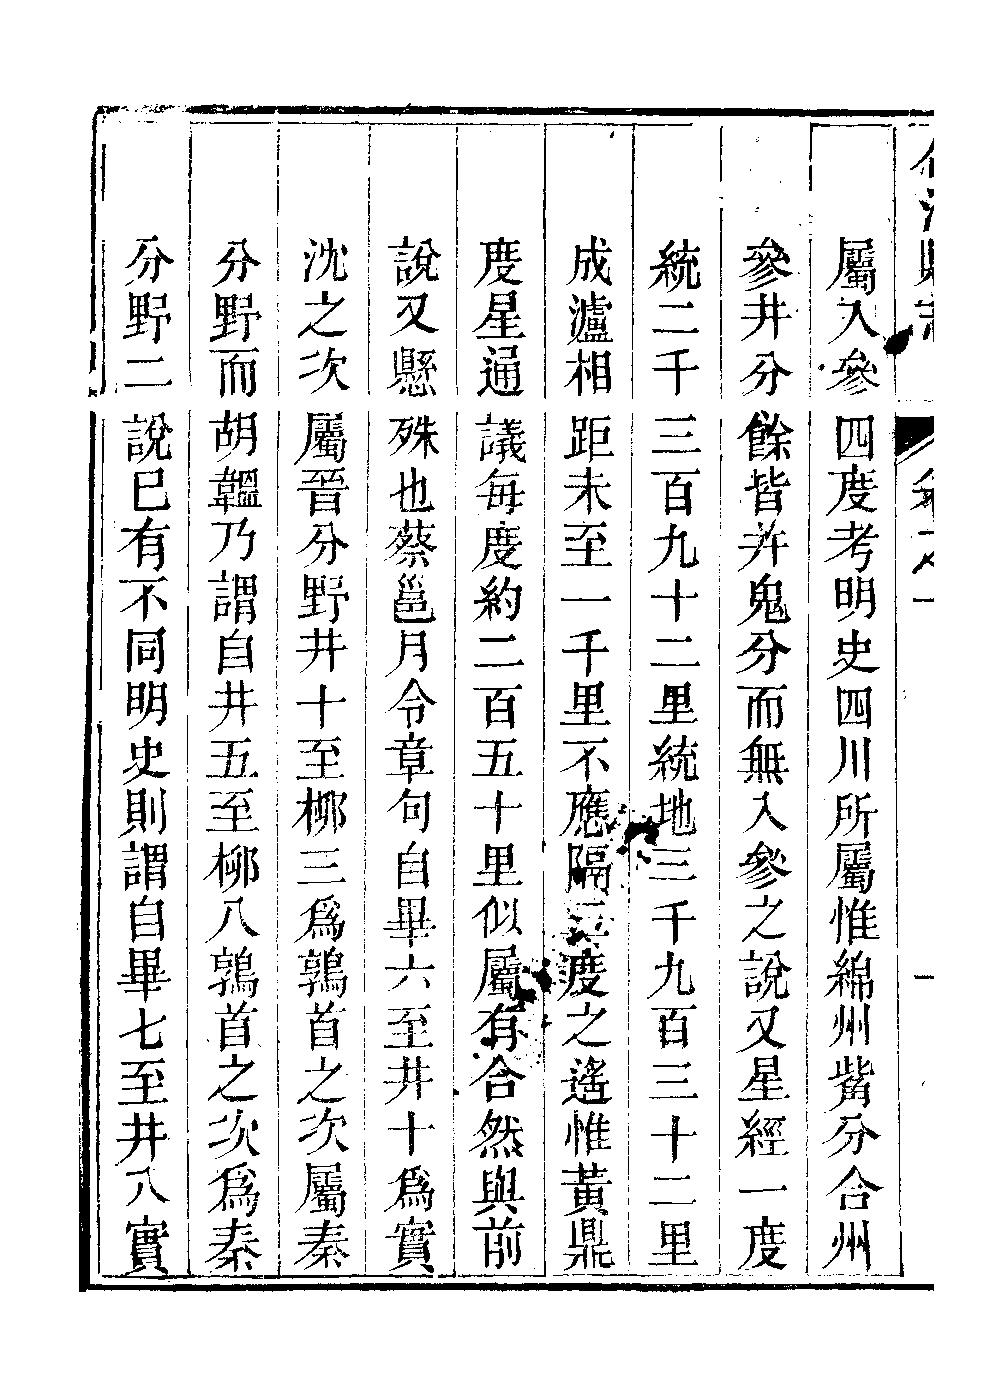 屬入參四度考明史四川所屬惟綿州觜分合州
參井分餘皆井鬼分而無入參之說又星經一度
統二千三百九十二里統地三千九百三十二里
成瀘相距未至一千里不應隔三度之遙惟黃鼎
度星通議每度約二百五十里似屬有合然與前
說又懸殊也蔡邕月令章句自畢六至井十為實
沈之次屬晉分野井十至柳三為鶉首之次屬秦
分野而胡韞乃謂自井五至柳八鶉首之次為秦
分野二說已有不同明史則謂自畢七至井八實